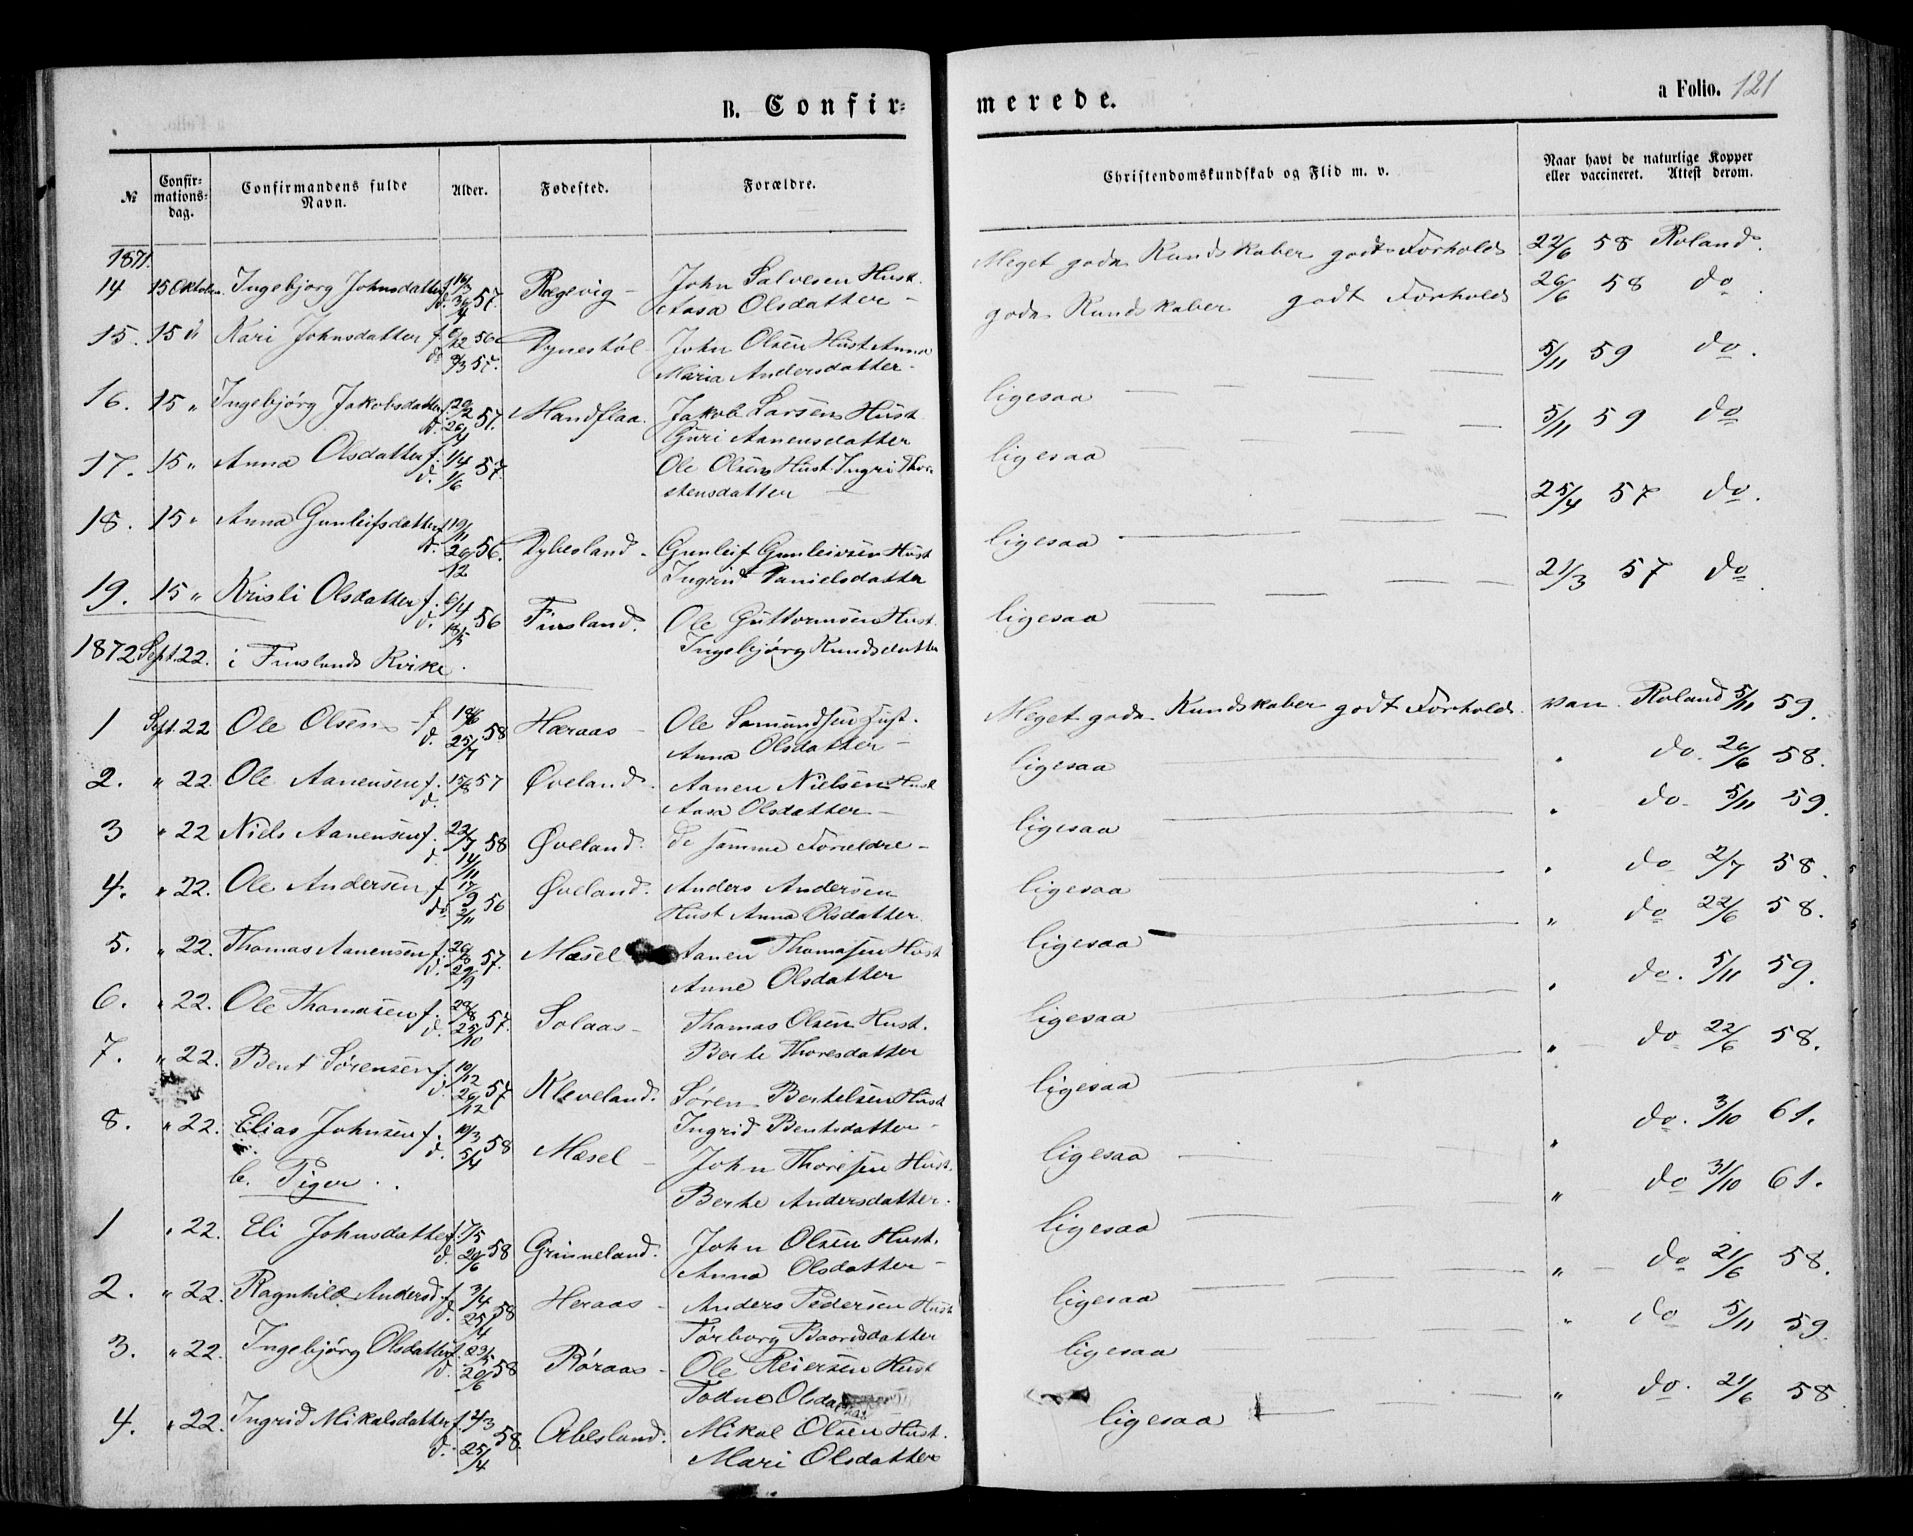 B. Confir-
merede.
a Folio. 121
№
Confir-
mations-
dag.
Confirmandens fulde
Navn.
Alder.
Fødested.
Forældre.
Christendomskundskab og Flid m. v.
Naar havt de naturlige Kopper
eller vaccineret. Attest derom.
1871.
14 15 Oktober Ingebjorg Johnsdatter f. 57. Regevig - John Salvesen Hust.
Aasa Olsdatter -
Meget gode Kundskaber godt Forhold 22/6 58 Roland.
15. 15 " Kari Johnsdatter f. 6/12 56
d. 8/3 57. Dynestøl - John Olsen Hust Anna
Maria Andersdatter -
gode Kundskaber godt Forhold 26/6 58 do.
16. 15 " Ingebjørg Jakobsdatter f. 57. Mandflaa. Jakob Larsen Hust
Guri Aanensdatter
ligesaa 5/11 59 do.
17. 15 " Anna Olsdatter f. 1/4
d. 1/6 57. Ole Olsen Hust. Ingri Thor-
stensdatter
ligesaa 5/11 59 do
18. 15 " Anna Gunleifsdatter f. 19/11
d. 26/12 56. Dybesland - Gunleif Gunleivsen Hust
Ingrid Danielsdatter
ligesaa 25/4 57 do.
19. 15 " Kristi Olsdatter f. 6/4
d. 13/5 56 Finsland. Ole Guttormsen Hust.
Ingebjørg Kundsdatter
ligesaa 21/3 57 do.
1872 Sept. 22. i Finslands Kirke.
1 Sept. 22 Ole Olsen f. 18/6
d. 25/7 58 Heraas - Ole Samundsen Hust.
Anna Olsdatter -
Meget gode Kundskaber godt Forhold. van. Roland 5/11 59.
2. " 22. Ole Aanensen f. 15/8 57
d. Øveland. Aanen Nielsen Hust
Aasa Olsdatter -
ligesaa " do. 26/6 58.
3 " 22 Niels Aanensen f. 22/7 58
d. 14/11 Øveland. de samme Forældre -
ligesaa " do. 5/11 59.
4. " 22. Ole Andersen f. 17/9
do 2/11 56 Øveland. Anders Andersen
Hust Anna Olsdatter.
ligesaa " do 2/7 58.
5. " 22. Thomas Aanensen f. 57.
d. 29/9 Mæsel Aanen Thomasen Hust
Anne Olsdatter
ligesaa " do 22/6 58.
6. " 22. Ole Thomasen f.
d. 25/10 57. Solaas - Thomas Olsen Hust.
Berte Thoresdatter
ligesaa " do. 5/11 59.
7. " 22. Bent Sørensen f. 10/12
d. 26/12 57 Kleveland. Søren Bertelsen Hust
Ingrid Bentsdatter -
ligesaa " do 22/6 58.
8. " 22. Elias Johnsen f. 10/3
d. 5/4 58 Mæsel - John Thoresen Hust.
Berte Andersdatter.
ligesaa " do. 3/10 61.
b. Piger.
1 " 22. Eli Johnsdatter f. 7/5
d. 58 Grinneland. John Olsen Hust.
Anna Olsdatter -
ligesaa " do 31/10 61.
2. " 22. Ragnhild Andersd. f. 3/4
d. 25/4 58 Heraas - Anders Pedersen Hust
Torborg Baardsdatter
ligesaa " do 21/6 58.
3. " 22. Ingebjørg Olsdatter f.
d. 20/6 58 Røraas - Ole Reiersen Hust
Todne Olsda
ligesaa " do 5/11 59.
4. " 22. Ingrid Mikalsdatter f. 2/3
d. 25/4 58. Abesland. Mikal Olsen Hust.
Mari Olsdatter
ligesaa " do. 21/6 58.